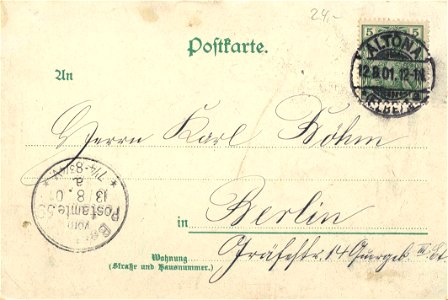 24.-
Postkarte.
5 5
ALTONA
12.8.01. 12-1N.
(ELBE)
An
Herrn Karl Böhm
7¼-8½ N.
a
13 8 0
Postamte 59
vom
B
in Berlin
Wohnung
(Straße und Hausnummer.)
Gräfestr. 14 Quergeb.